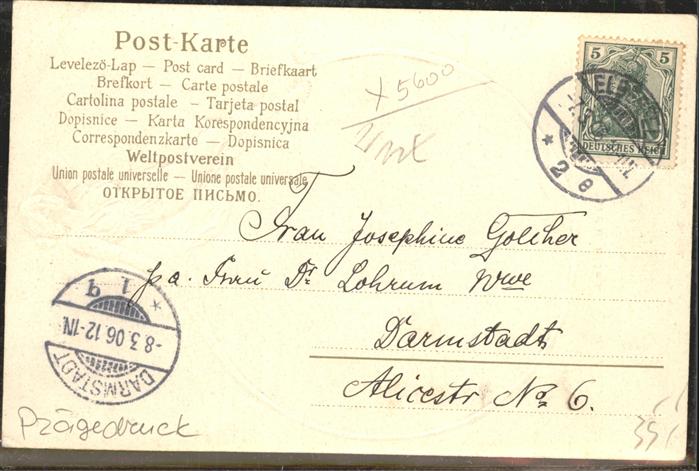 Post-Karte
Levelezö-Lap — Post card — Briefkaart
Brefkort — Carte postale
Cartolina postale — Tarjeta postal
Dopisnice — Karta Korespondencyjna
Correspondenzkarte — Dopisnica
Weltpostverein
Union postale universelle — Unione postale universale
ОТКРЫТОЕ ПИСЬМО.
x 5600
5 5
DEUTSCHES REICH
* 2 e
Frau Josephine Golther
pa. Frau Dr Lohrum Wwe
Darmstadt
Alicestr No 6.
* 1 q
-8.3.06.12-1N.
DARMSTADT
Prägedruck
35